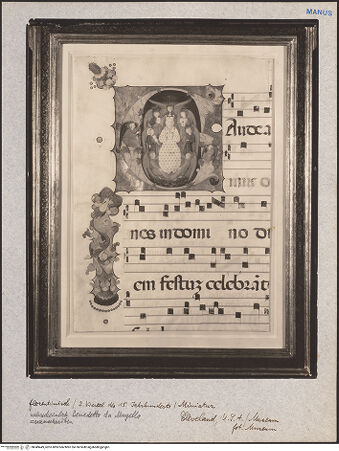 MANUS
Audea
mus o
nes in domi no di
em festuz celebrāt
florentinisch / 2. Viertel des 15. Jahrhunderts / Miniatur
Benedetto da Mugello
zugeschrieben
Cleveland, U.S.A. / Museum
fot. Museum